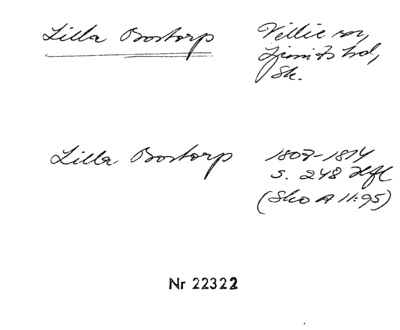 Lilla Bostorp
Villie sn,
Ljunits hd,
Sk.
Lilla Bostorp
1807-1814
s. 248 Hfl
(Sko A II:95)
Nr 22322